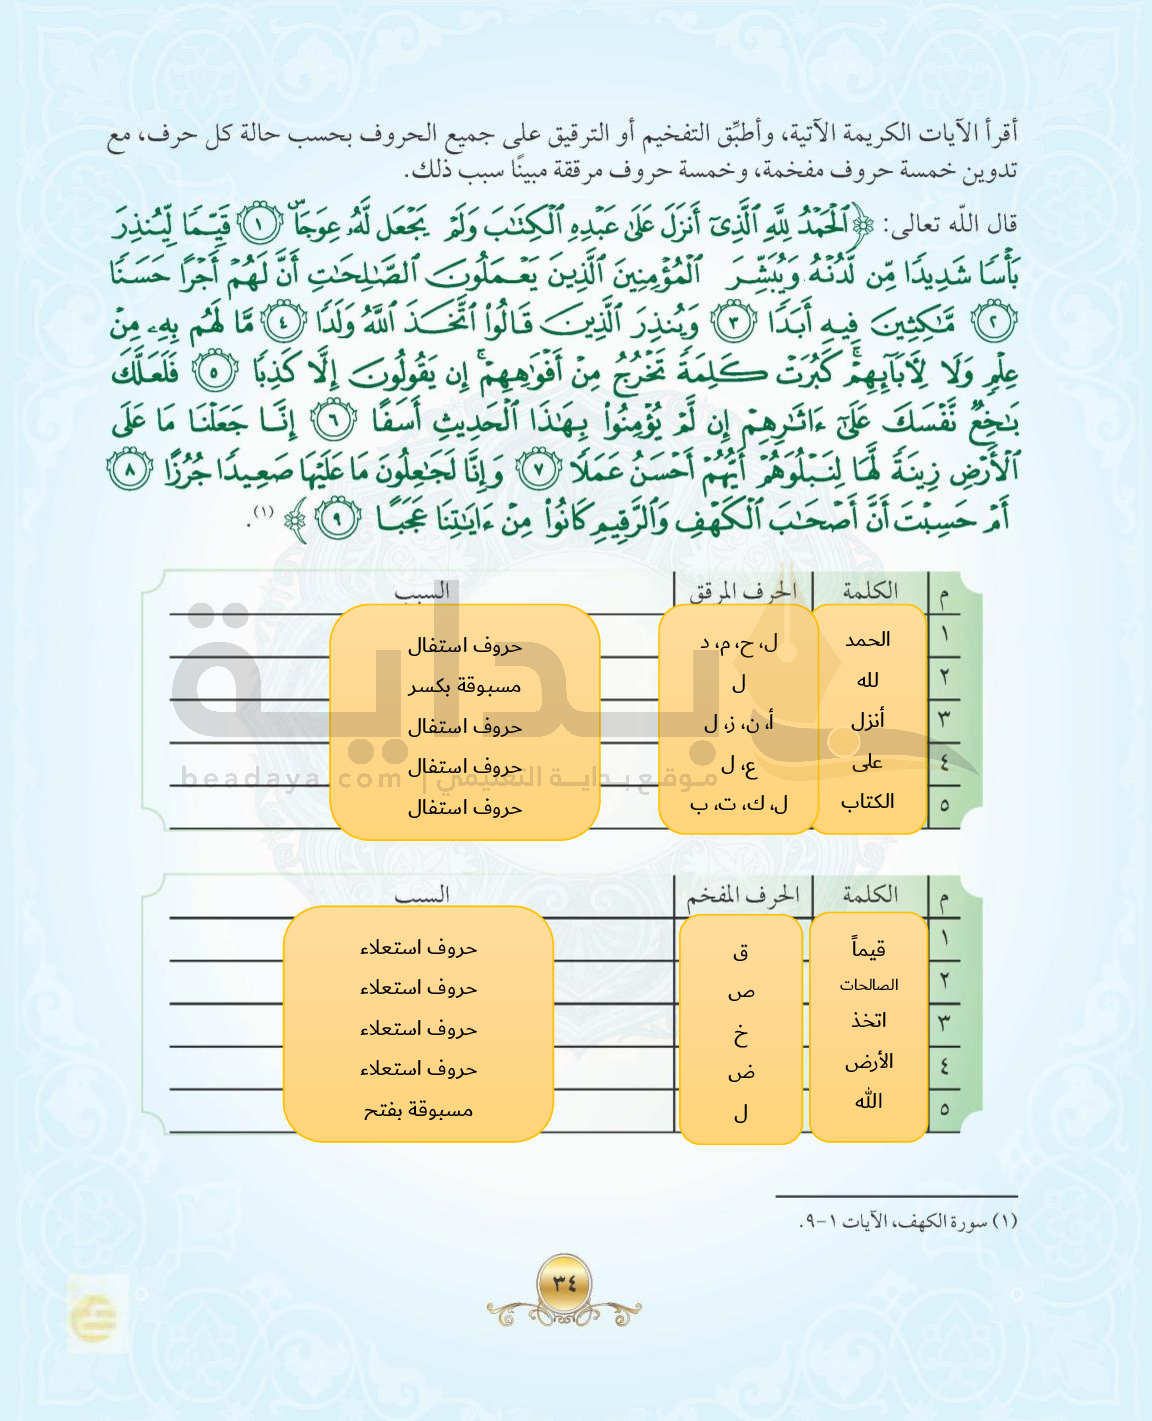 أقرأ الآيات الكريمة الآتية، وأطبِّق التفخيم أو الترقيق على جميع الحروف بحسب حالة كل حرف، مع
تدوين خمسة حروف مفخمة، وخمسة حروف مرققة مبينًا سبب ذلك.
قال اللّه تعالى: ﴿ٱلْحَمْدُ لِلَّهِ ٱلَّذِىٓ أَنزَلَ عَلَىٰ عَبْدِهِ ٱلْكِتَٰبَ وَلَمْ يَجْعَل لَّهُۥ عِوَجَاۜ ١ قَيِّمًا لِّيُنذِرَ
بَأْسًا شَدِيدًا مِّن لَّدُنْهُ وَيُبَشِّرَ ٱلْمُؤْمِنِينَ ٱلَّذِينَ يَعْمَلُونَ ٱلصَّٰلِحَٰتِ أَنَّ لَهُمْ أَجْرًا حَسَنًا
٢ مَّٰكِثِينَ فِيهِ أَبَدًا ٣ وَيُنذِرَ ٱلَّذِينَ قَالُوا۟ ٱتَّخَذَ ٱللَّهُ وَلَدًا ٤ مَّا لَهُم بِهِۦ مِنْ
عِلْمٍ وَلَا لِءَابَآئِهِمْ ۚ كَبُرَتْ كَلِمَةً تَخْرُجُ مِنْ أَفْوَٰهِهِمْ ۚ إِن يَقُولُونَ إِلَّا كَذِبًا ٥ فَلَعَلَّكَ
بَٰخِعٌ نَّفْسَكَ عَلَىٰٓ ءَاثَٰرِهِمْ إِن لَّمْ يُؤْمِنُوا۟ بِهَٰذَا ٱلْحَدِيثِ أَسَفًا ٦ إِنَّا جَعَلْنَا مَا عَلَى
ٱلْأَرْضِ زِينَةً لَّهَا لِنَبْلُوَهُمْ أَيُّهُمْ أَحْسَنُ عَمَلًا ٧ وَإِنَّا لَجَٰعِلُونَ مَا عَلَيْهَا صَعِيدًا جُرُزًا ٨
أَمْ حَسِبْتَ أَنَّ أَصْحَٰبَ ٱلْكَهْفِ وَٱلرَّقِيمِ كَانُوا۟ مِنْ ءَايَٰتِنَا عَجَبًا ٩ ﴾ (١).
م الكلمة الحرف المرقق السبب
١ الحمد ل، ح، م، د حروف استفال
٢ لله ل مسبوقة بكسر
٣ أنزل أ، ن، ز، ل حروف استفال
٤ على ع، ل حروف استفال
٥ الكتاب ل، ك، ت، ب حروف استفال
بداية
موقع بداية التعليمي | beadaya.com
م الكلمة الحرف المفخم السبب
١ قيماً ق حروف استعلاء
٢ الصالحات ص حروف استعلاء
٣ اتخذ خ حروف استعلاء
٤ الأرض ض حروف استعلاء
٥ الله ل مسبوقة بفتح
(١) سورة الكهف، الآيات ١-٩.
٣٤